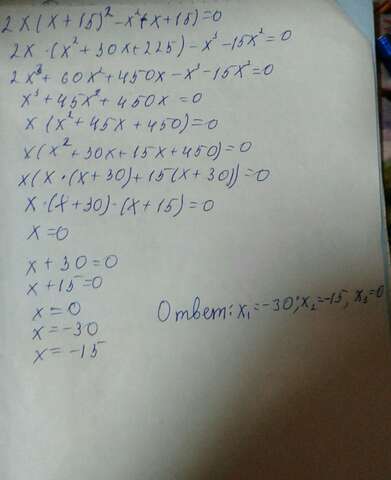 2x(x+15)²-x²(x+15)=0
2x·(x²+30x+225)-x³-15x²=0
2x³+60x²+450x-x³-15x²=0
x³+45x²+450x=0
x(x²+45x+450)=0
x(x²+30x+15x+450)=0
x(x·(x+30)+15(x+30))=0
x·(x+30)·(x+15)=0
x=0
x+30=0
x+15=0
x=0
x=-30
x=-15
Ответ: x₁=-30; x₂=-15, x₃=0